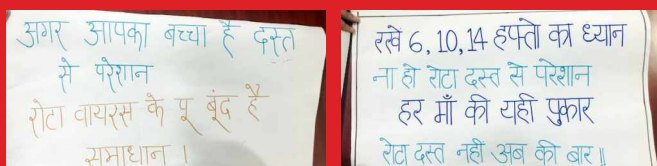 अगर आपका बच्चा है दस्त
से परेशान
रोटा वायरस के ५ बूंद है
समाधान ।
रखे 6, 10, 14 हफ्तो का ध्यान
ना हो रोटा दस्त से परेशान
हर माँ की यही पुकार
रोटा दस्त नही अब की बार ॥